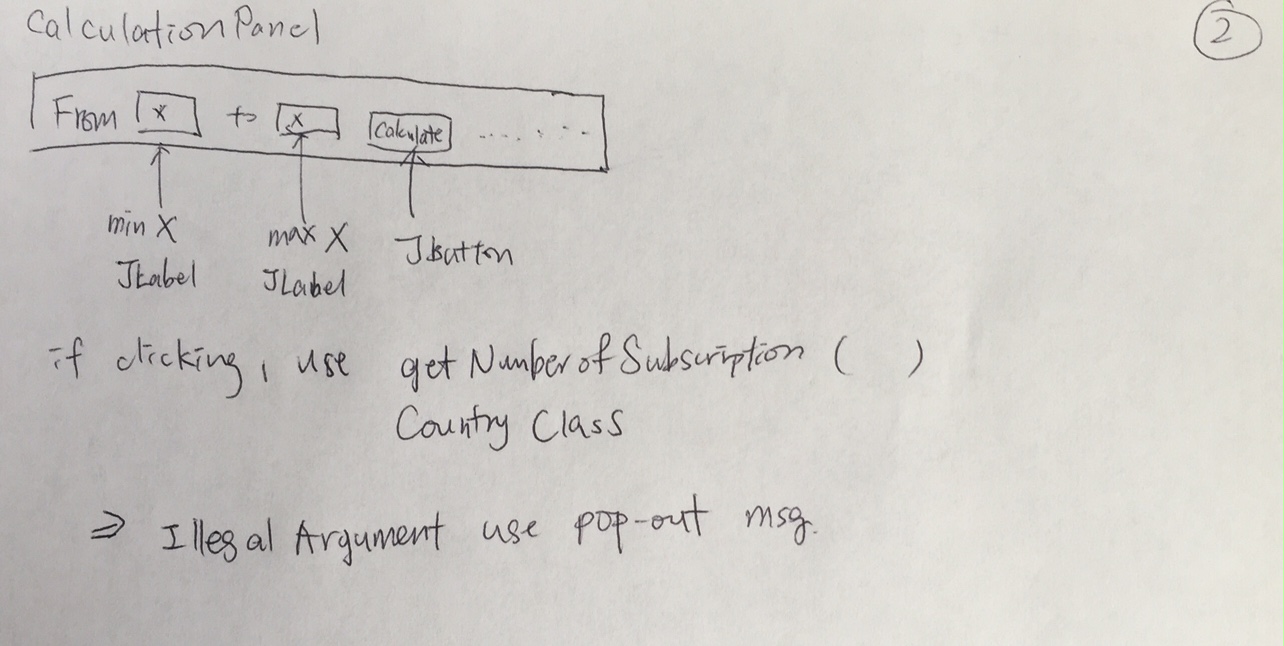 Calculation Panel
2
From x to x Calculate ........
min X
JLabel
max X
JLabel
JButton
if clicking, use get Number of Subscription ( )
Country Class
⇒ Illegal Argument use pop-out msg.